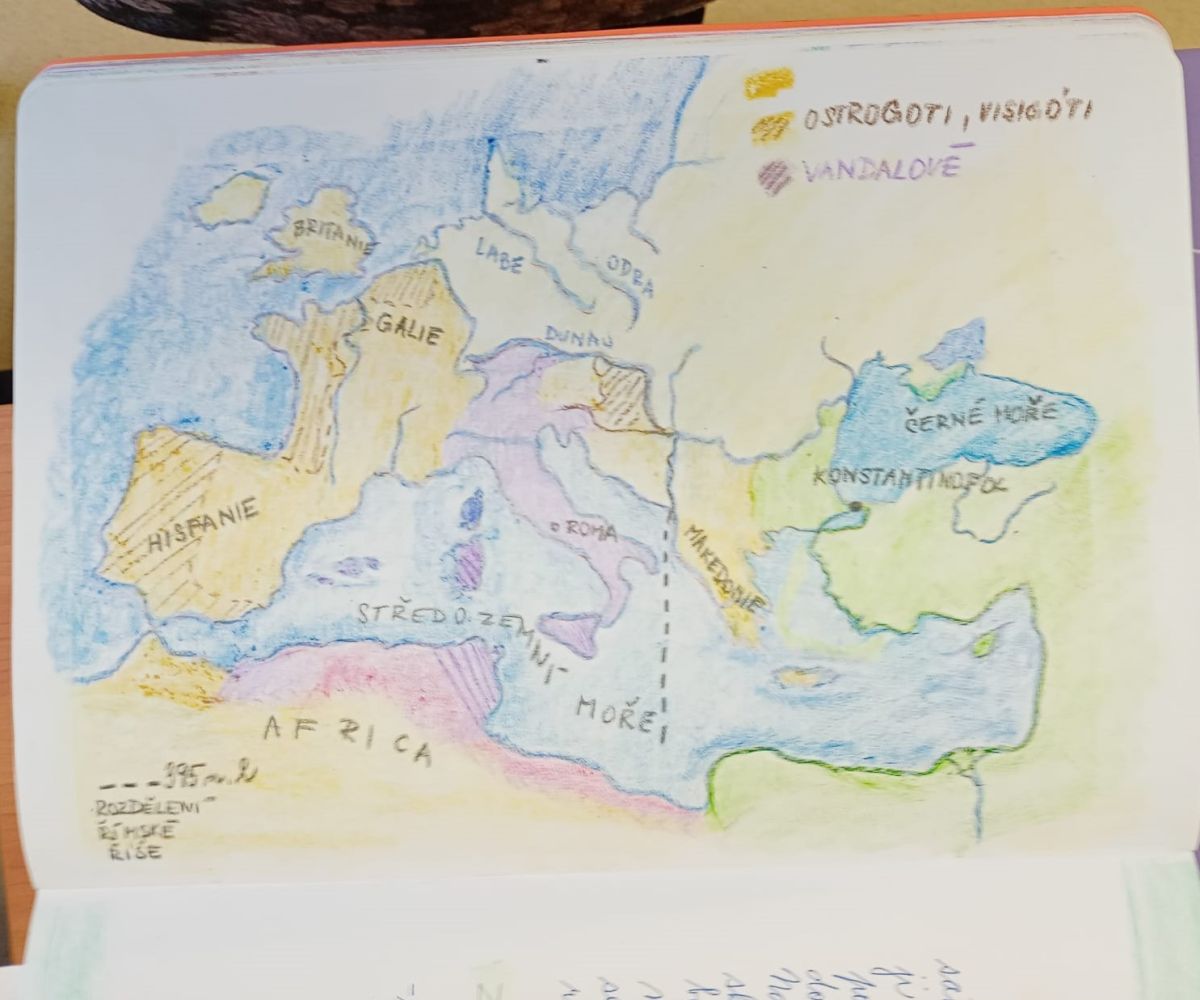 OSTROGOTI, VISIGÓTI
VANDALOVÉ
BRITANIE
LABE
ODRA
GALIE
DUNAJ
ČERNÉ MOŘE
KONSTANTINOPOL
HISPANIE
ROMA
MAKEDONIE
STŘEDOZEMNÍ
MOŘE
AFRICA
395 n.l
ROZDĚLENÍ
ŘÍMSKÉ
ŘÍŠE